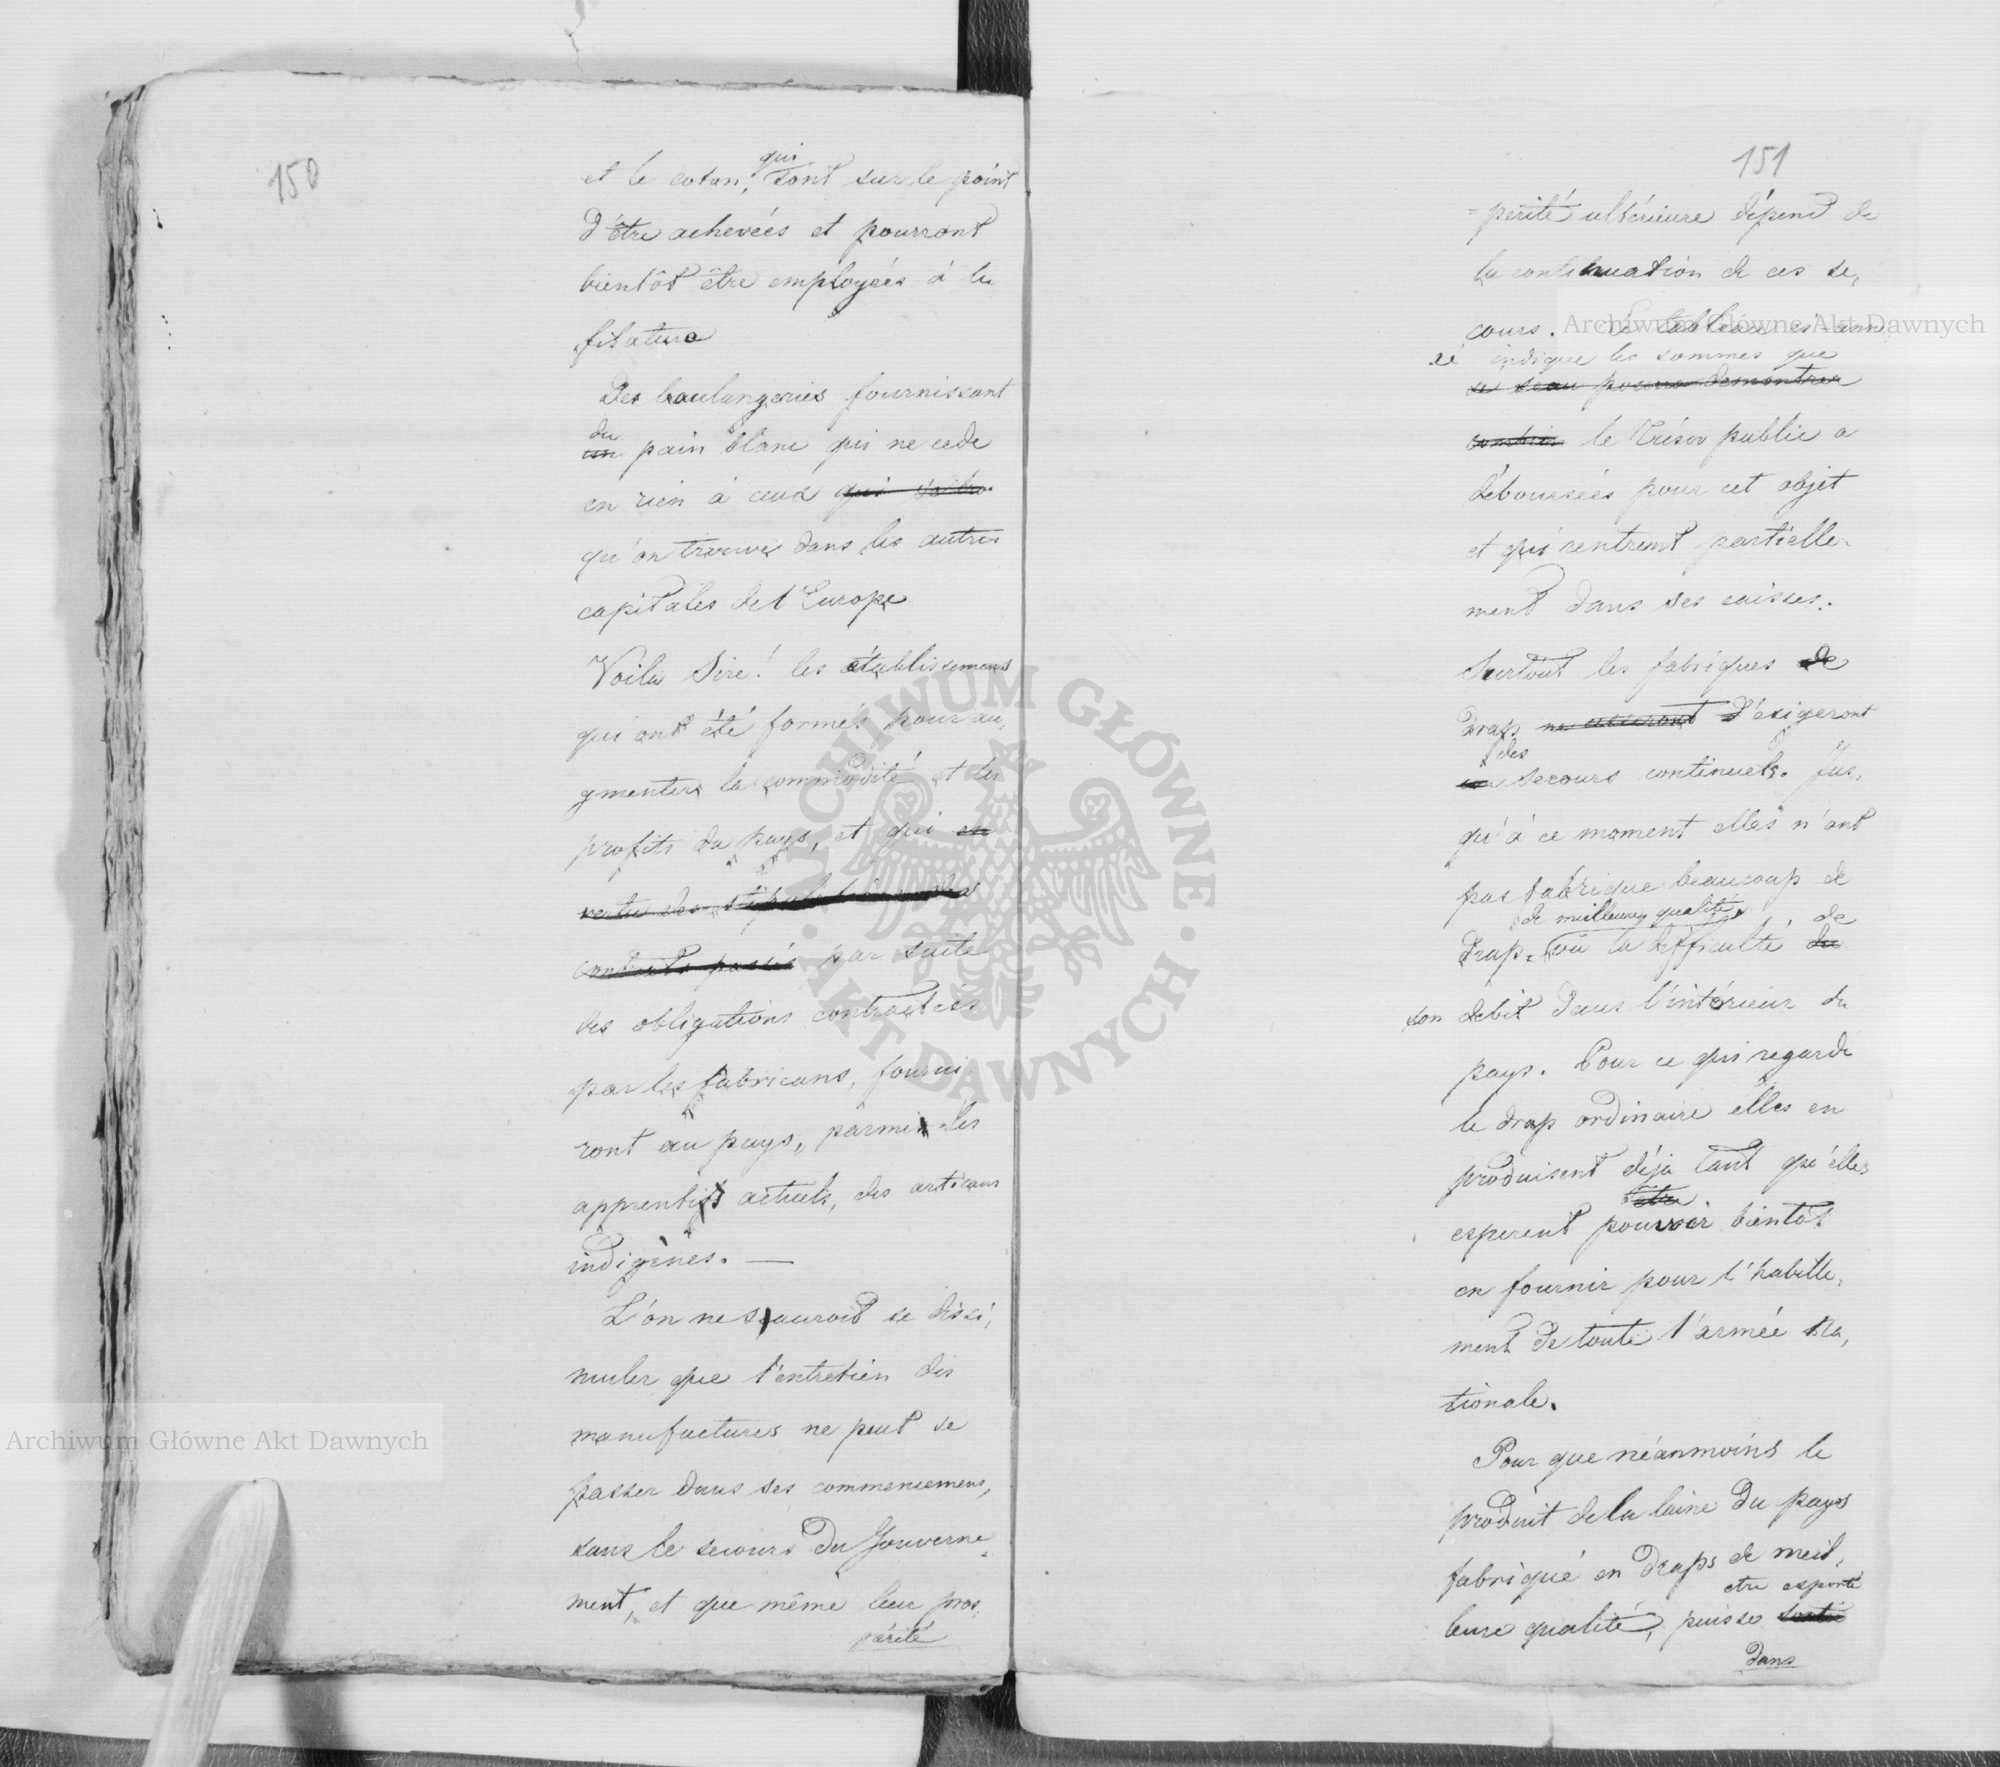 150
et le coton, qui sont sur le point
d'être achevées et pourront
bientôt être employées à la
filature
Des boulangeries fournissant
du
un pain blanc qui ne cede
en rien à ceux
qu'on trouve dans les autres
capitales de l'Europe
Voila Sire! les établissemens
qui ont été formés pour au,
gmenter la commodité et les
profits du pays, et qui en
vertu des stipulations des
contrats passés par suite
des obligations contractées
par les fabricans, fourni,
ront au pays, parmi les
apprentifs actuels, des artisans
indigènes. —
L'on ne sauroit se dissi,
muler que l'entretien des
manufactures ne peut se
passer dans ses commencemens,
sans le secours du Gouverne,
ment, et que même leur pros,
périté
151
=perité ultérieure dépend de
la continuation de ces se,
cours. Le tableau ci-anne
xé indique les sommes que
combien le Trésor public a
déboursées pour cet objet
et qui rentrent partielle,
ment dans ses caisses.
Surtout les fabriques de
draps ne cesseront d'exigeront
des
secours continuels. Jus,
qu'à ce moment elles n'ont
pas fabrique beaucoup de
de meilleure qualité, de
Drap, vû la difficulté du
son debit dans l'intérieur du
pays. Pour ce qui regarde
le drap ordinaire elles en
produisent déja tant qu'elles
être
esperent pouvoir bientôt
en fournir pour l'habille,
ment de toute l'armée Na,
tionale.
Pour que néanmoins le
produit de la laine du pays
fabriqué en draps de meil,
etre exporté
leure qualité, puisse sortir
dans
Archiwum Główne Akt Dawnych
Archiwum Główne Akt Dawnych
ARCHIWUM GŁÓWNE · AKT DAWNYCH ·